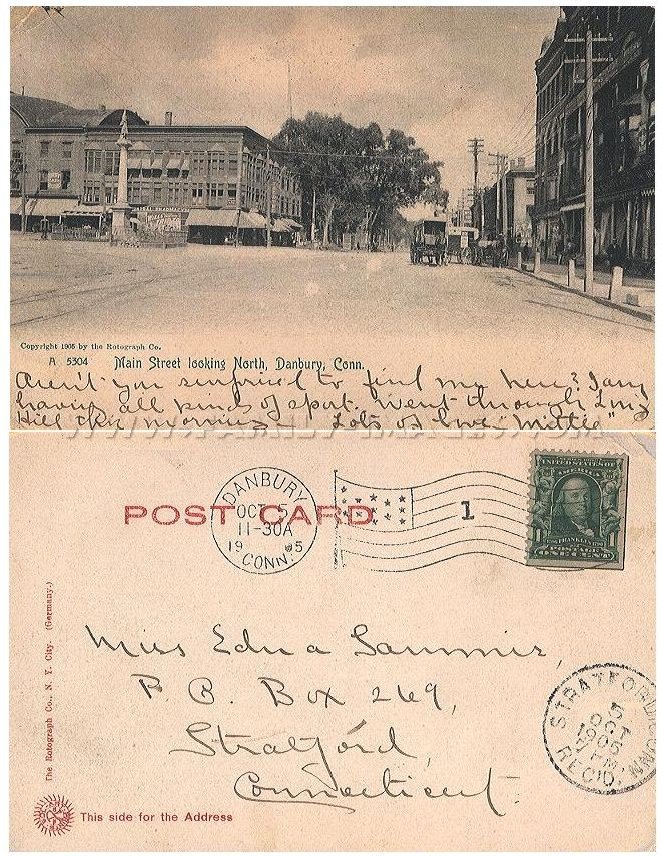 Copyright 1905 by the Rotograph Co.
A 5304 Main Street looking North, Danbury, Conn.
Aren't you surprised to find me here? I am
having all kinds of sport. Went through Long
Hill this morning Lots of love "Mittie"
WWW.FAMILY-IMAGES.COM
POST CARD
DANBURY
OCT 5
11-30A
1905
CONN.
1
UNITED STATES OF
AMERICA
FRANKLIN
POSTAGE
ONE CENT
Miss Edna Sammis,
P. O. Box 269,
Stratford,
Connecticut.
STRATFORD, CONN.
5
OCT
1905
7 PM
REC'D.
The Rotograph Co., N. Y. City. (Germany.)
This side for the Address